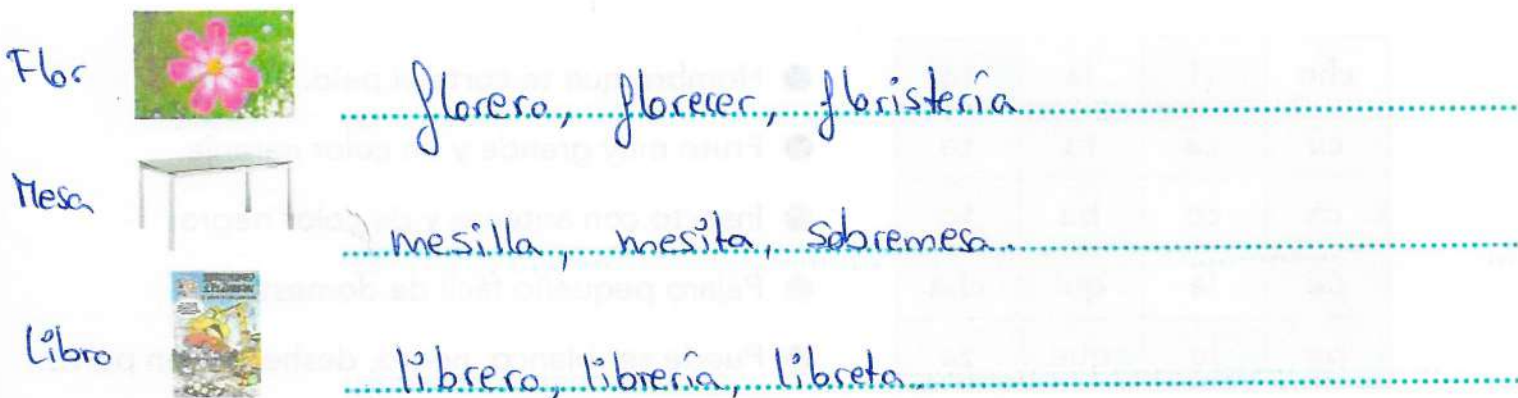 Flor
florero, florecer, floristería
Mesa
mesilla, mesita, sobremesa.
Libro
librero, librería, libreta.